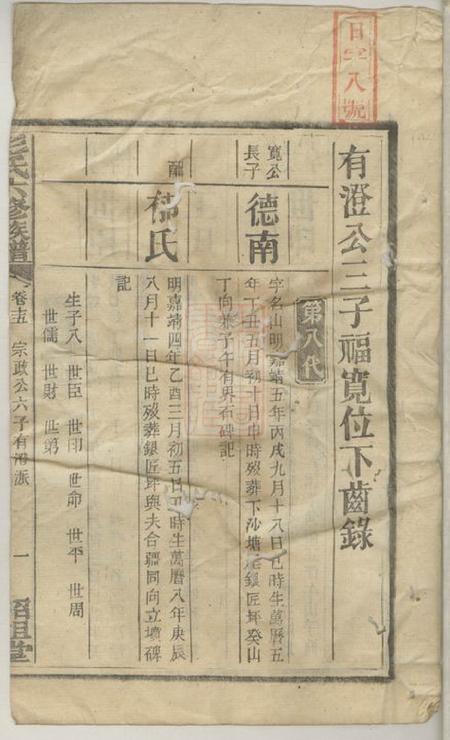 日字八號
有澄公三子福寬位下齒錄
第八代
寬公長子
德南
字名山明嘉靖五年丙戌九月十八日巳時生萬曆五
年丁丑五月初十日申時歿葬下沙塘銀匠坪癸山
丁向兼子午有界石碑記
配
氏
明嘉靖四年乙酉三月初五日丑時生萬曆八年庚辰
八月十一日巳時歿葬銀匠坪與夫合疆同向立墳碑
記
生子八 世臣 世印 世命 世平 世周
世儒 世財 世第
氏六修族譜
卷十五 宗政公六子有澄派
一
祖堂